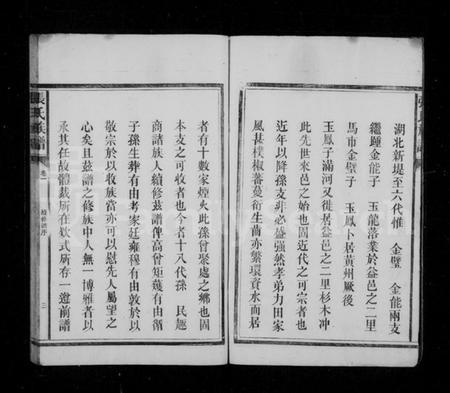 湖北新堤至六代惟 金璧 金能兩支
繼鍾金能子 玉龍落業於益邑之二里
馬市金璧子 玉鳳卜居黃州厥後
玉鳳子滿河又徙居益邑之二里杉木冲
此先世來邑之始也固近代之可宗者也
近年以降孫支非必盛强然孝弟力田家
風甚樸椒蕃蔓衍生齒亦繁環資水而居
者有十數家煙火此孫曾聚處之鄉也固
本支之可收者也今者十八代孫 民
商諸族人續修茲譜俾高曾矩矱有由循
子孫生葬有由考家廷雍穆有由敦於以
敬宗於以收族當亦可以慰先人屬望之
心矣且茲譜之修族中人無一博雅者以
承其任故體裁所在欵式所存一遵前譜
張氏族譜 卷一 序 三